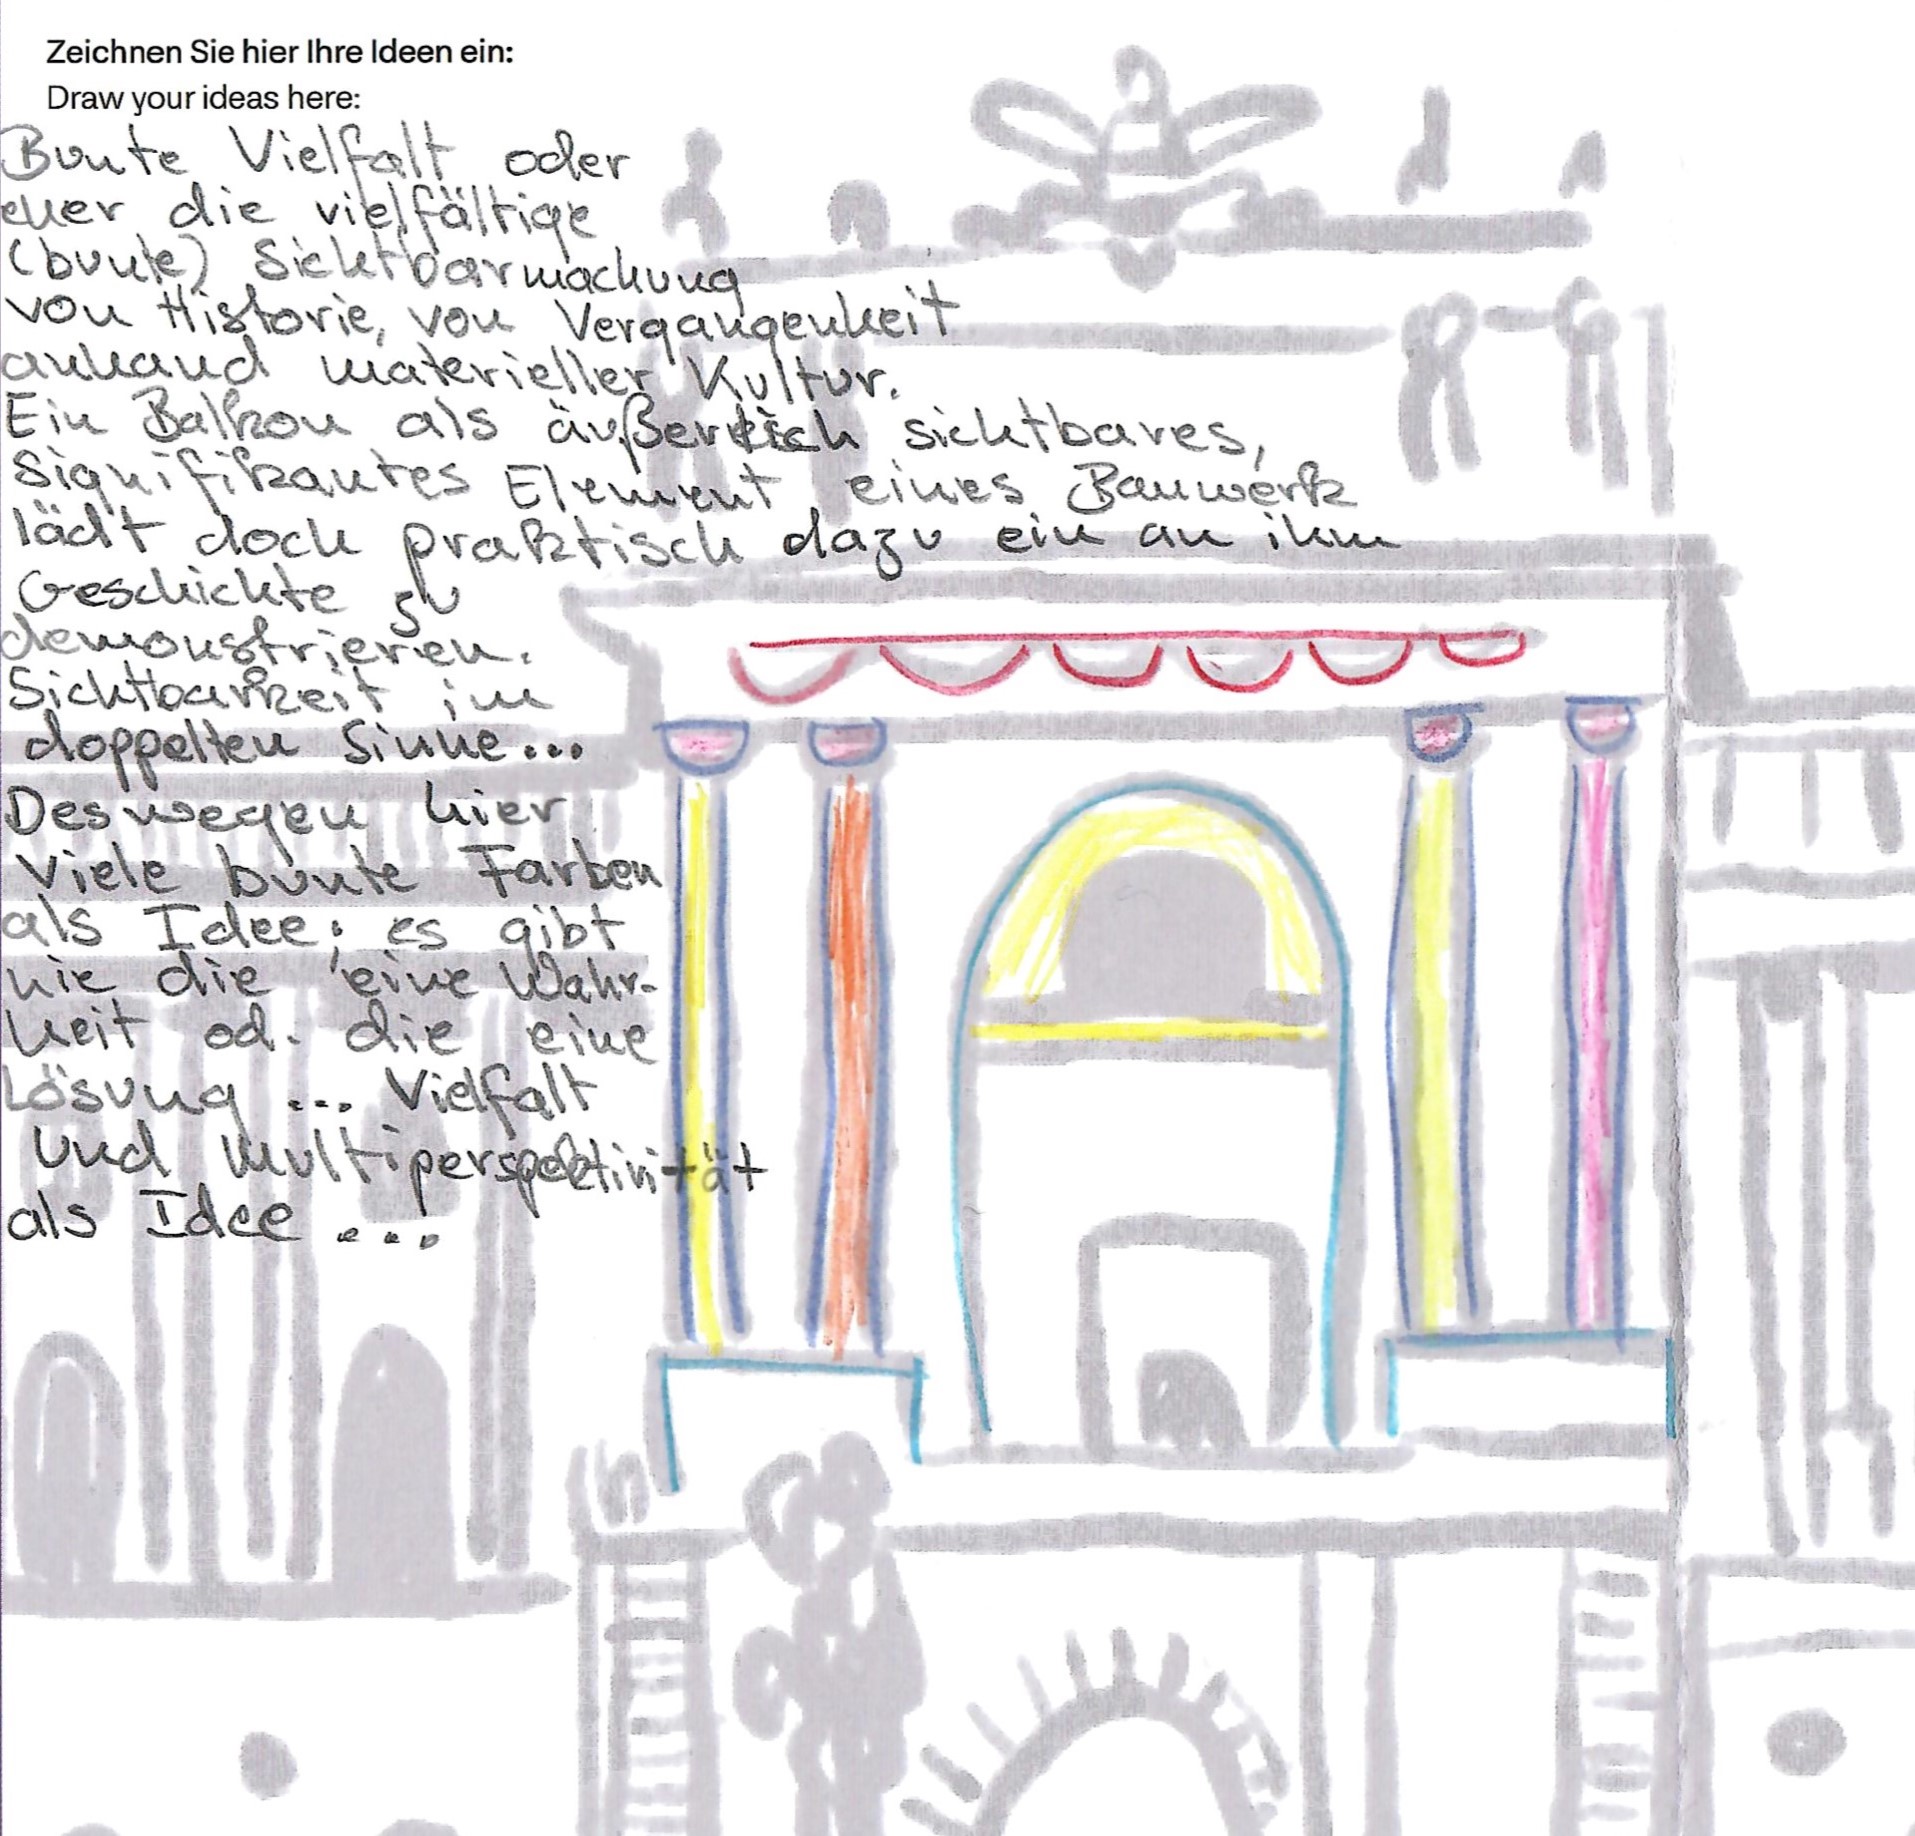 Zeichnen Sie hier Ihre Ideen ein:
Draw your ideas here:
Bunte Vielfalt oder
eher die vielfältige
(bunte) Sichtbarmachung
von Historie, von Vergangenheit
anhand materieller Kultur.
Ein Balkon als äußerlich sichtbares,
signifikantes Element eines Bauwerk
lädt doch praktisch dazu ein an ihm
Geschichte zu
demonstrieren.
Sichtbarkeit im
doppelten Sinne...
Deswegen hier
viele bunte Farben
als Idee; es gibt
nie die eine Wahr-
heit od. die eine
Lösung ... Vielfalt
und Multiperspektivität
als Idee ...